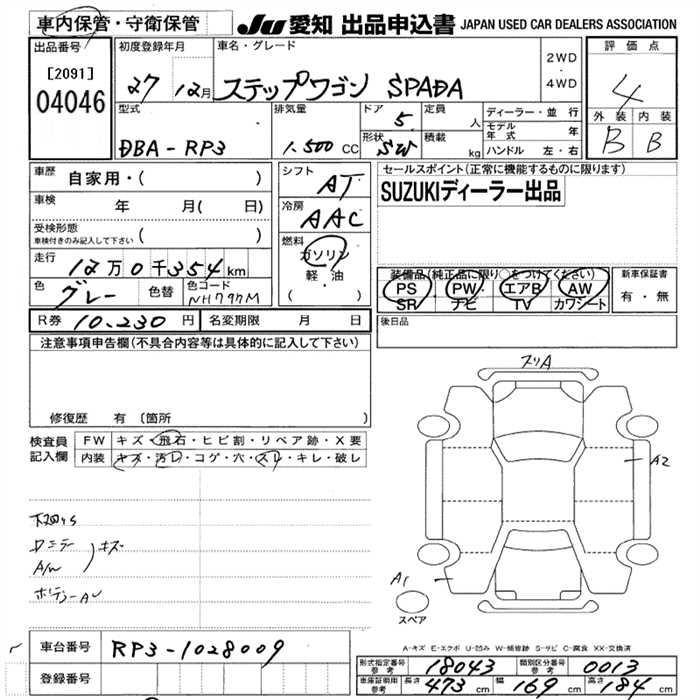 車内保管・守衛保管
JU 愛知 出品申込書 JAPAN USED CAR DEALERS ASSOCIATION
出品番号 初度登録年月 車名・グレード 2WD ・ 4WD 評価点
[2091] 27 12月 ステップワゴン SPADA 4
04046
型式 排気量 ドア 5 定員 人 ディーラー・並行 外装 内装
モデル年式 年
DBA-RP3 1.500 CC 形状 SW 積載 kg ハンドル 左・右 B B
車歴 自家用・( ) シフト AT セールスポイント(正常に機能するものに限ります)
車検 年 月( 日) 冷房 AAC SUZUKIディーラー出品
受検形態
車検付きのみ記入して下さい ( ) 燃料 ガソリン
走行 12万0千354km 軽・油 装備品(純正品に限り○をつけてください) 新車保証書
色 グレー 色替 色コード NH797M ( ) PS・PW・エアB・AW 有・無
SR・ナビ・TV・カワシート
R券 10,230円 名変期限 月 日 後日品
注意事項申告欄(不具合内容等は具体的に記入して下さい)
スリA
修復歴 有 〔箇所
検査員 FW キズ・飛石・ヒビ割・リペア跡・X要
記入欄 内装 キズ・汚レ・コゲ・穴・スレ・キレ・破レ
A2
下回りS
A/W キズ
A1
スペア
A-キズ E-エクボ U-凹み W-補修跡 S-サビ C-腐食 XX-交換済
車台番号 RP3-1028009
形式指定番号 参考 18043 類別区分番号 参考 0013
登録番号 車庫証明用 参考 長さ 473cm 幅 169cm 高さ 184cm